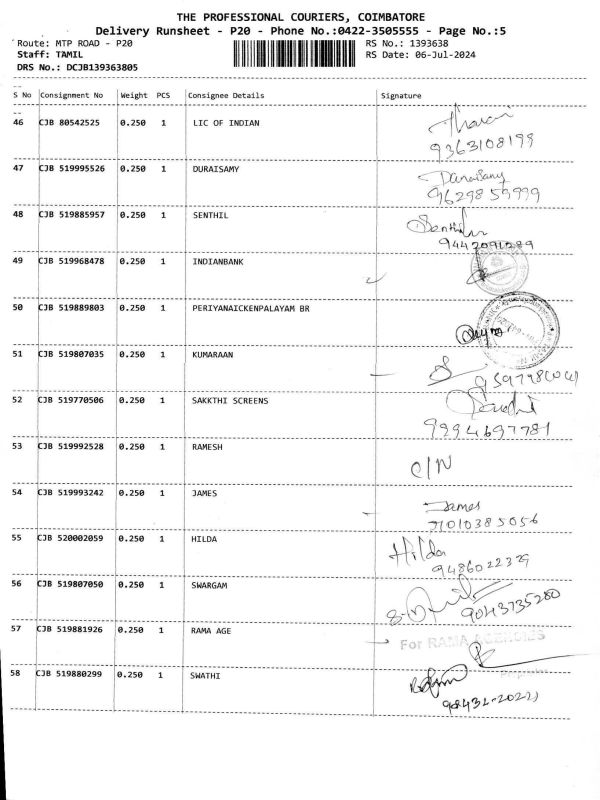 THE PROFESSIONAL COURIERS, COIMBATORE
Delivery Runsheet - P20 - Phone No.:0422-3505555 - Page No.:5
Route: MTP ROAD - P20
RS No.: 1393638
Staff: TAMIL
RS Date: 06-Jul-2024
DRS No.: DCJB139363805
S No Consignment No Weight PCS Consignee Details Signature
46 CJB 80542525 0.250 1 LIC OF INDIAN
9363108199
47 CJB 519995526 0.250 1 DURAISAMY Duraisamy
9629859999
48 CJB 519885957 0.250 1 SENTHIL Senthil
9442091289
49 CJB 519968478 0.250 1 INDIANBANK
50 CJB 519889803 0.250 1 PERIYANAICKENPALAYAM BR
51 CJB 519807035 0.250 1 KUMARAAN
52 CJB 519770506 0.250 1 SAKKTHI SCREENS
9994697781
53 CJB 519992528 0.250 1 RAMESH C/N
54 CJB 519993242 0.250 1 JAMES James
71010385056
55 CJB 520002059 0.250 1 HILDA Hilda
9486022329
56 CJB 519807050 0.250 1 SWARGAM
9043735280
57 CJB 519881926 0.250 1 RAMA AGE For RAMA AGENCIES
58 CJB 519880299 0.250 1 SWATHI